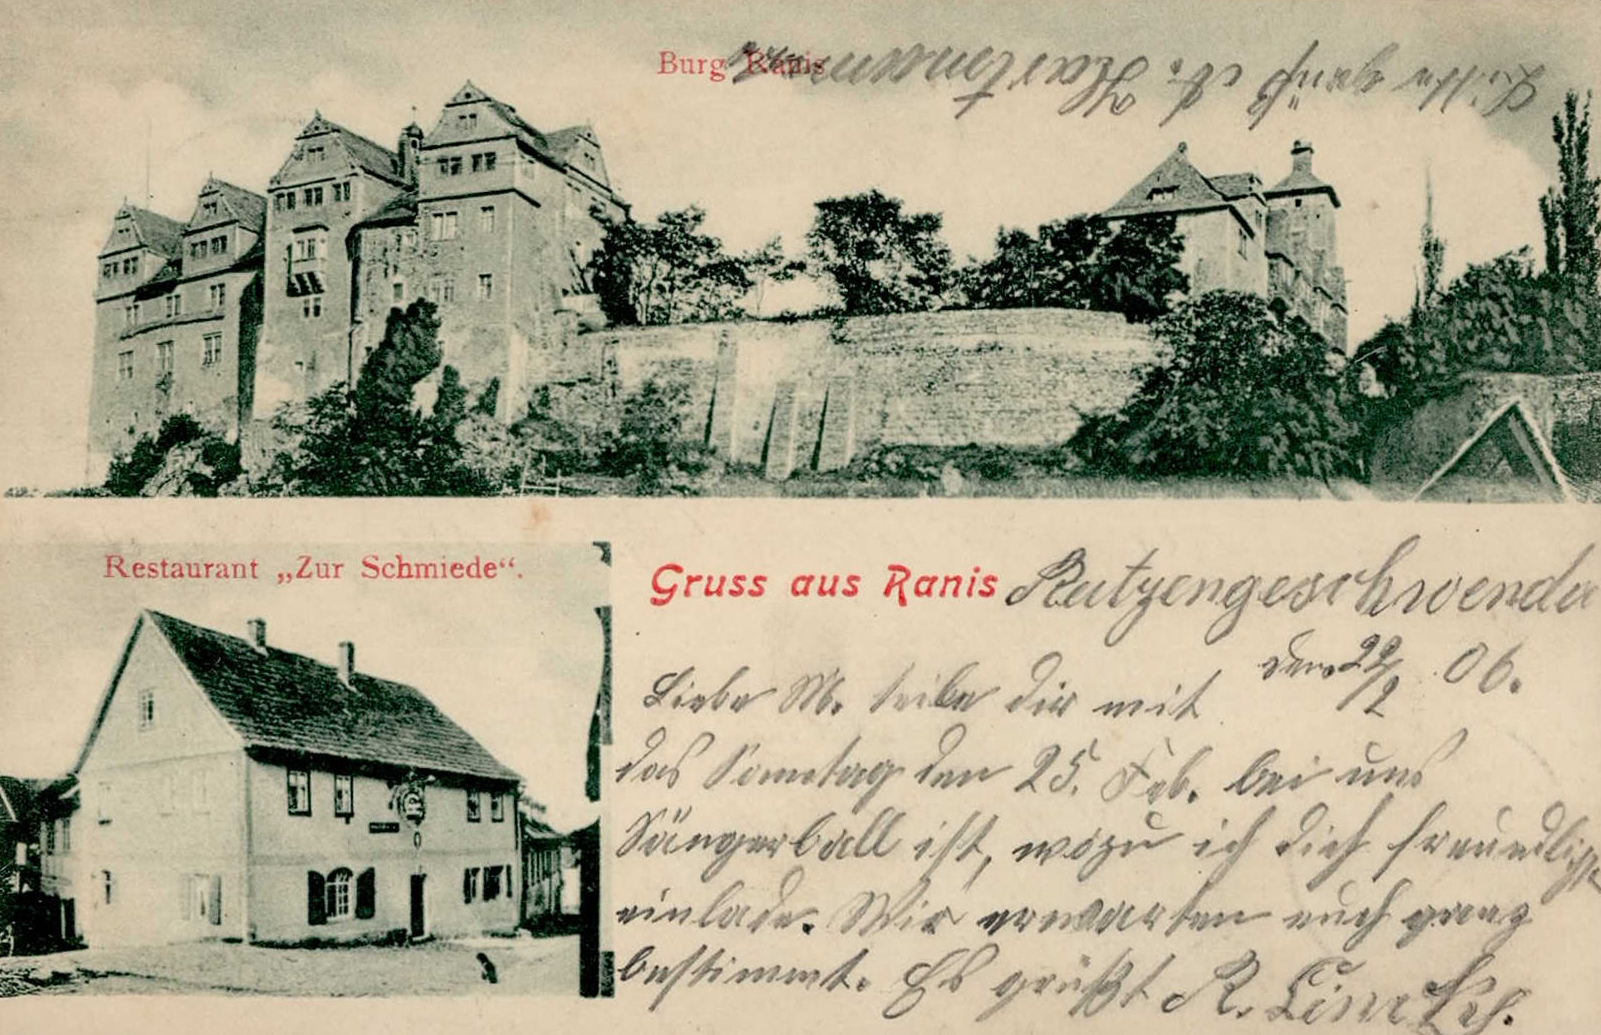 Burg Ranis
Bitte grüß A. Hartmann
Restaurant „Zur Schmiede“.
Gruss aus Ranis
Rutzengeschwenda
den 22/2 06.
Liebe M. teile dir mit
das Sonntag den 25. Feb. bei uns
Sängerball ist, wozu ich dich freundligst
einlade. Wir erwarten euch ganz
bestimmt. Es grüßt R.